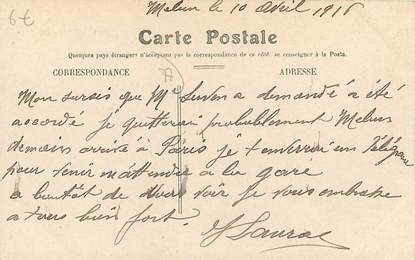 6€
Melun le 10 Avril 1916
Carte Postale
Quelques pays étrangers n'acceptant pas la correspondance de ce côté, se renseigner à la Poste.
CORRESPONDANCE
ADRESSE
Mon sursis que Mr a demandé a été
accordé je quitterai probablement Melun
demain arrivé à Paris je t enverrai un Télégrame
pour venir m attendre a la gare
a bientôt de vous voir je vous embrasse
a tous bien fort.